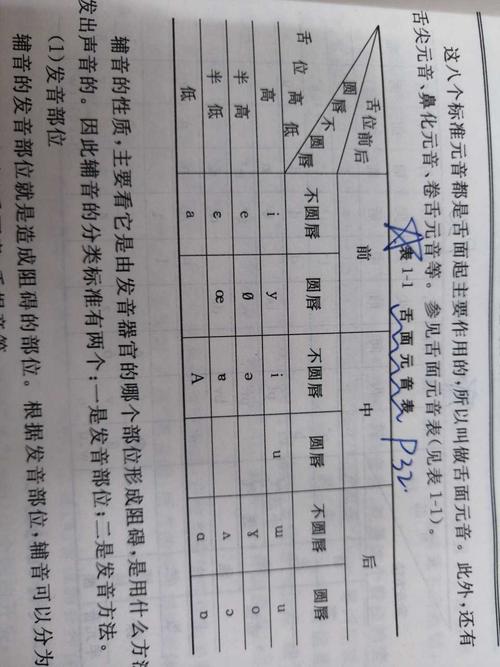 这八个标准元音都是舌面起主要作用的,所以叫做舌面元音。此外,还有
舌尖元音、鼻化元音、卷舌元音等。参见舌面元音表(见表1-1)。
表1-1 舌面元音表 P32.
舌位前后 前 中 后
圆唇不圆唇 不圆唇 圆唇 不圆唇 圆唇 不圆唇 圆唇
舌位高低
高 i y i u ɯ u
半高 e ø ə ɣ o
半低 ɛ œ ɐ ʌ ɔ
低 a A ɑ ɒ
辅音的性质,主要看它是由发音器官的哪个部位形成阻碍,是用什么方法
发出声音的。因此辅音的分类标准有两个:一是发音部位;二是发音方法。
(1)发音部位
辅音的发音部位就是造成阻碍的部位。根据发音部位,辅音可以分为